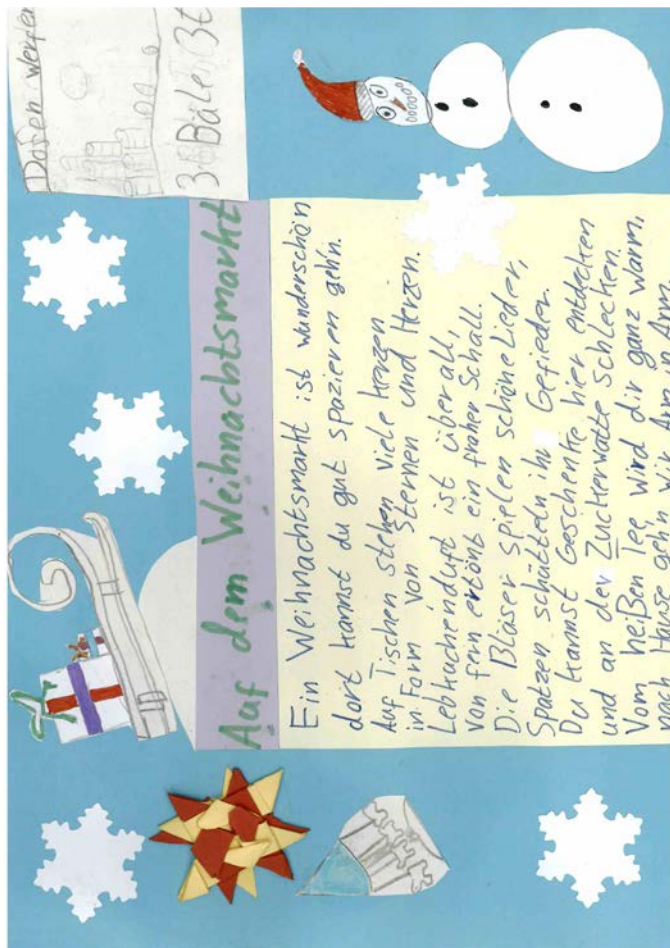 Dosen werfen
3 Bäle 3€
Auf dem Weihnachtsmarkt
Ein Weihnachtsmarkt ist wunderschön
dort kannst du gut spazieren geh'n.
Auf Tischen stehen viele Kerzen
in Form von Sternen und Herzen.
Lebkuchenduft ist überall,
von fern ertönt ein froher Schall.
Die Bläser spielen schöne Lieder,
Spatzen schütteln ihr Gefieder.
Du kannst Geschenke hier entdecken
und an der Zuckerwatte Schlecken.
Vom heißen Tee wird dir ganz warm,
nach Hause geh'n wir Arm in Arm.